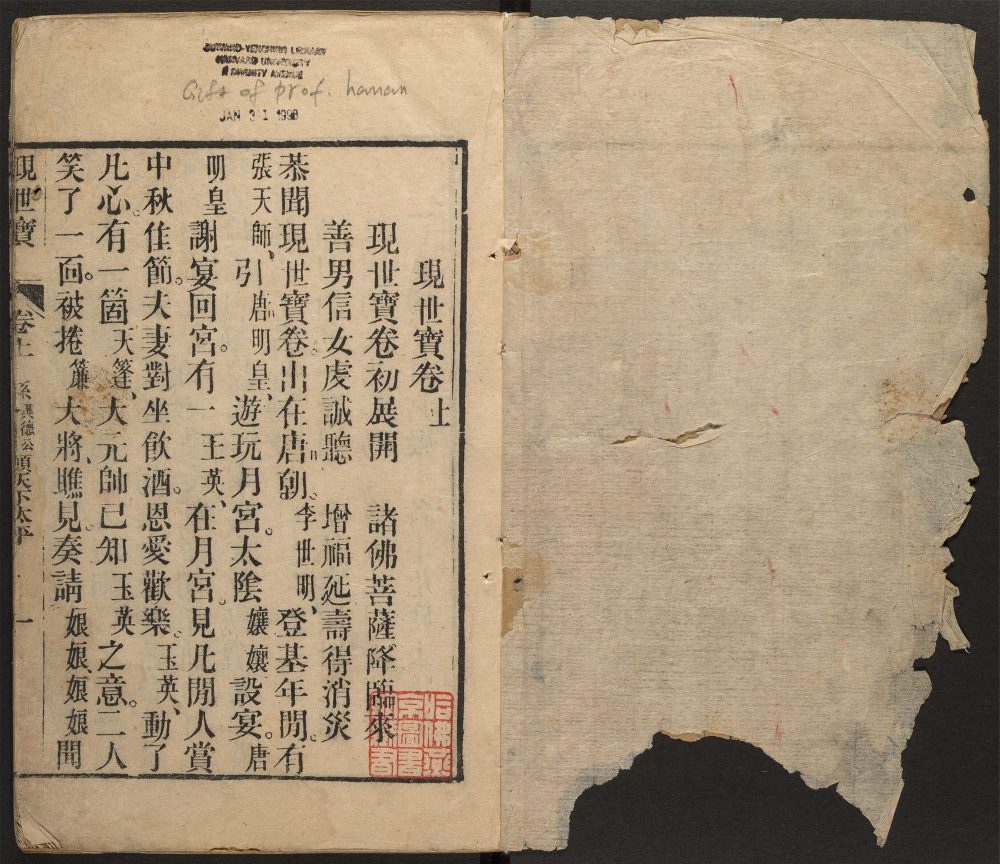 HARVARD-YENCHING LIBRARY
HARVARD UNIVERSITY
2 DIVINITY AVENUE
Gift of prof. hanan
JAN 31 1998
現世寶卷上
現世寶卷初展開 諸佛菩薩降臨來
善男信女虔誠聽 增福延壽得消災
恭聞現世寶卷。出在唐朝。李世明、登基年閒。有
張天師、引唐明皇、遊玩月宮。太陰孃孃設宴。唐
明皇謝宴回宮。有一王英、在月宮。見凡閒人賞
中秋佳節。夫妻對坐飲酒。恩愛歡樂。玉英、動了
凡心。有一箇天篷、大元帥已知玉英之意。二人
笑了一面。被捲簾大將、瞧見。奏請娘娘、娘娘聞
現世寶 卷上 德公願天下太平 一
哈佛燕京圖書